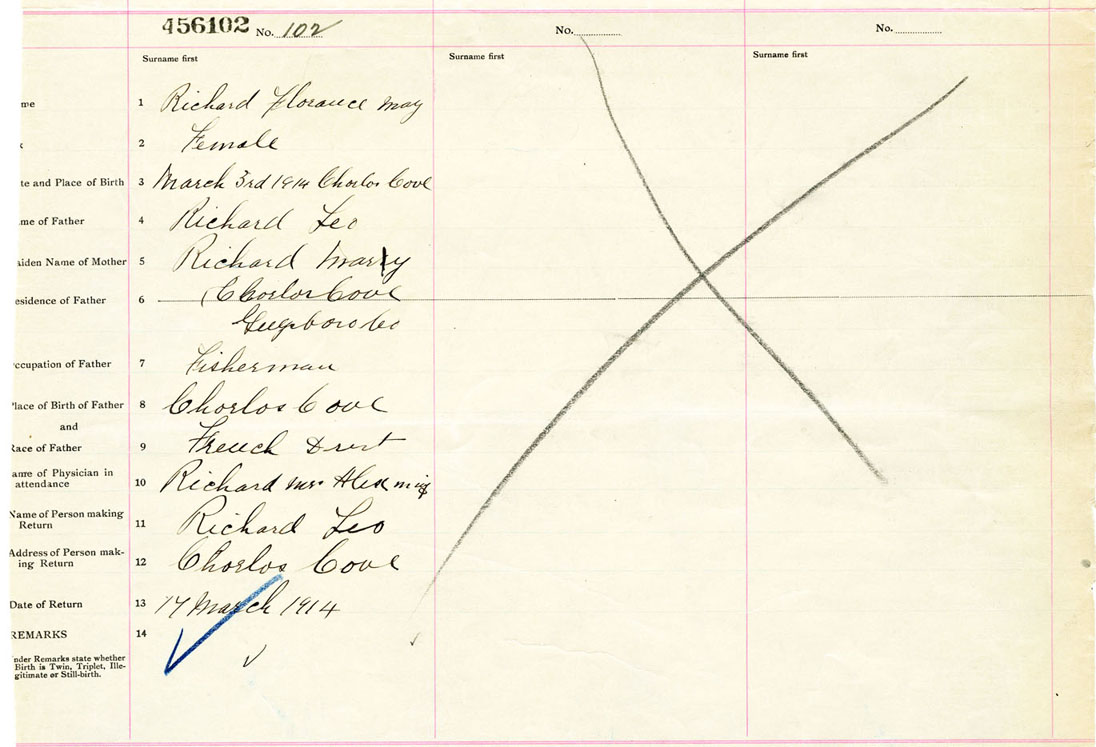 456102 No. 102
No.
No.
Surname first
Surname first
Surname first
me 1 Richard Florance May
2 Female
te and Place of Birth 3 March 3rd 1914 Chorlos Cove
me of Father 4 Richard Leo
aiden Name of Mother 5 Richard Marry
esidence of Father 6 Chorlos Cove
Guysboro Co
ccupation of Father 7 Fisherman
lace of Birth of Father 8 Chorlos Cove
and
Race of Father 9 French
ame of Physician in
attendance 10 Richard Mrs.
Name of Person making
Return 11 Richard Leo
Address of Person mak-
ing Return 12 Chorlos Cove
Date of Return 13 17 March 1914
REMARKS 14
nder Remarks state whether
Birth is Twin, Triplet, Ille-
gitimate or Still-birth.